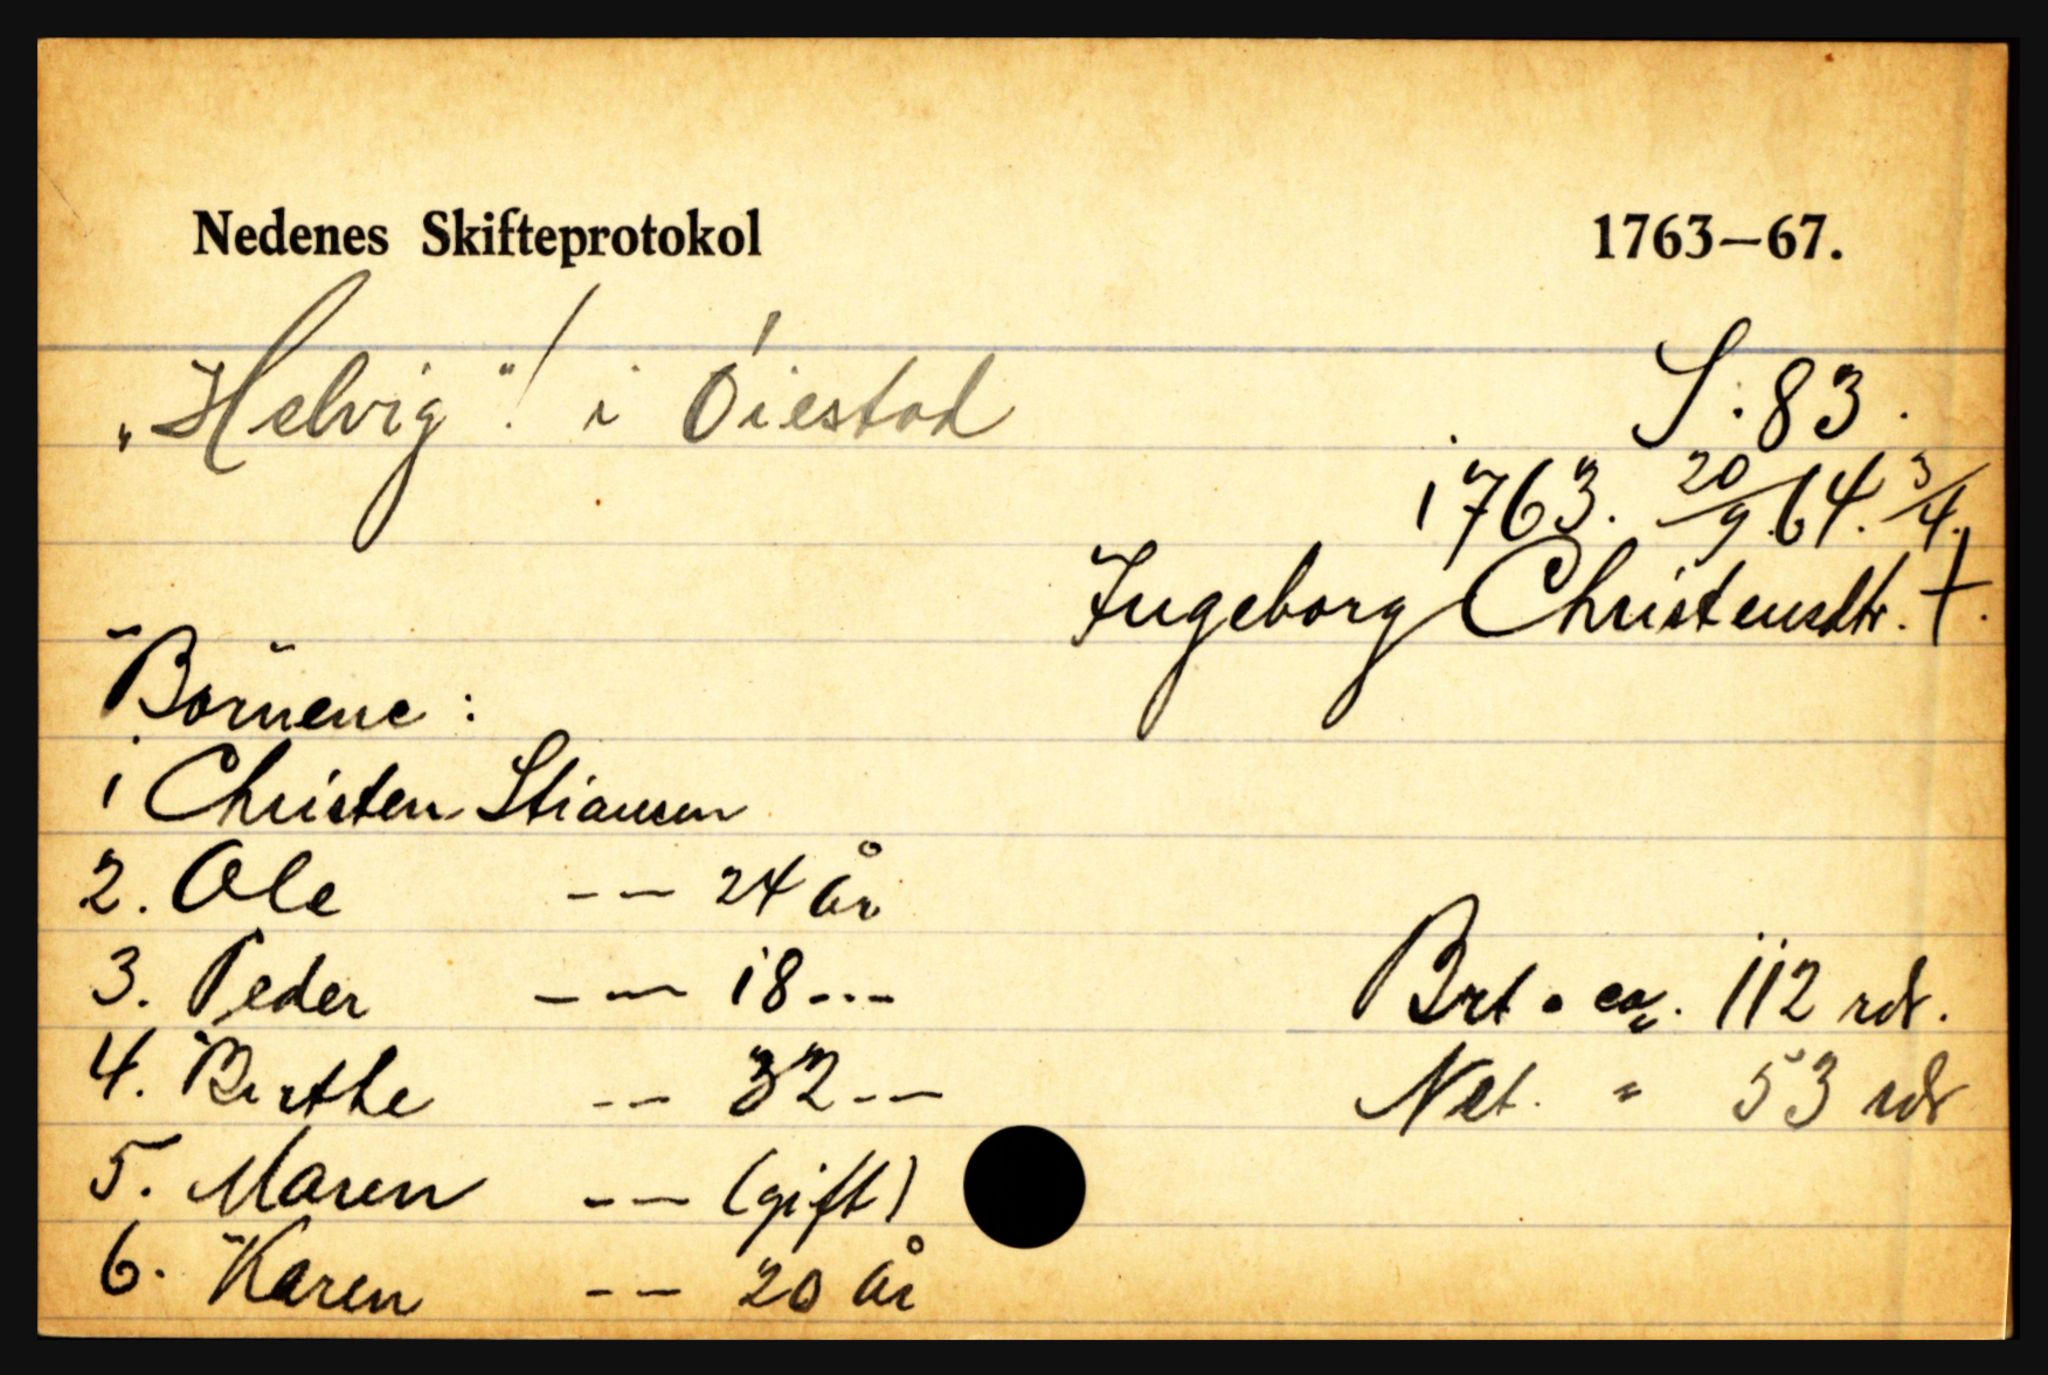 Nedenes Skifteprotokol 1763—67.
„Helvig"! i Öiestad S. 83.
1763. 20/9 64. 3/4.
Ingeborg Christensdtr. †.
Börnene :
1 Christen Stiansen
2. Ole -- 24 år
3. Peder -- 18 ---
Brt. ca. 112 rdr.
4. Birthe -- 32 --
Net. " 53 rdr
5. Maren -- (gift)
6. Karen -- 20 år